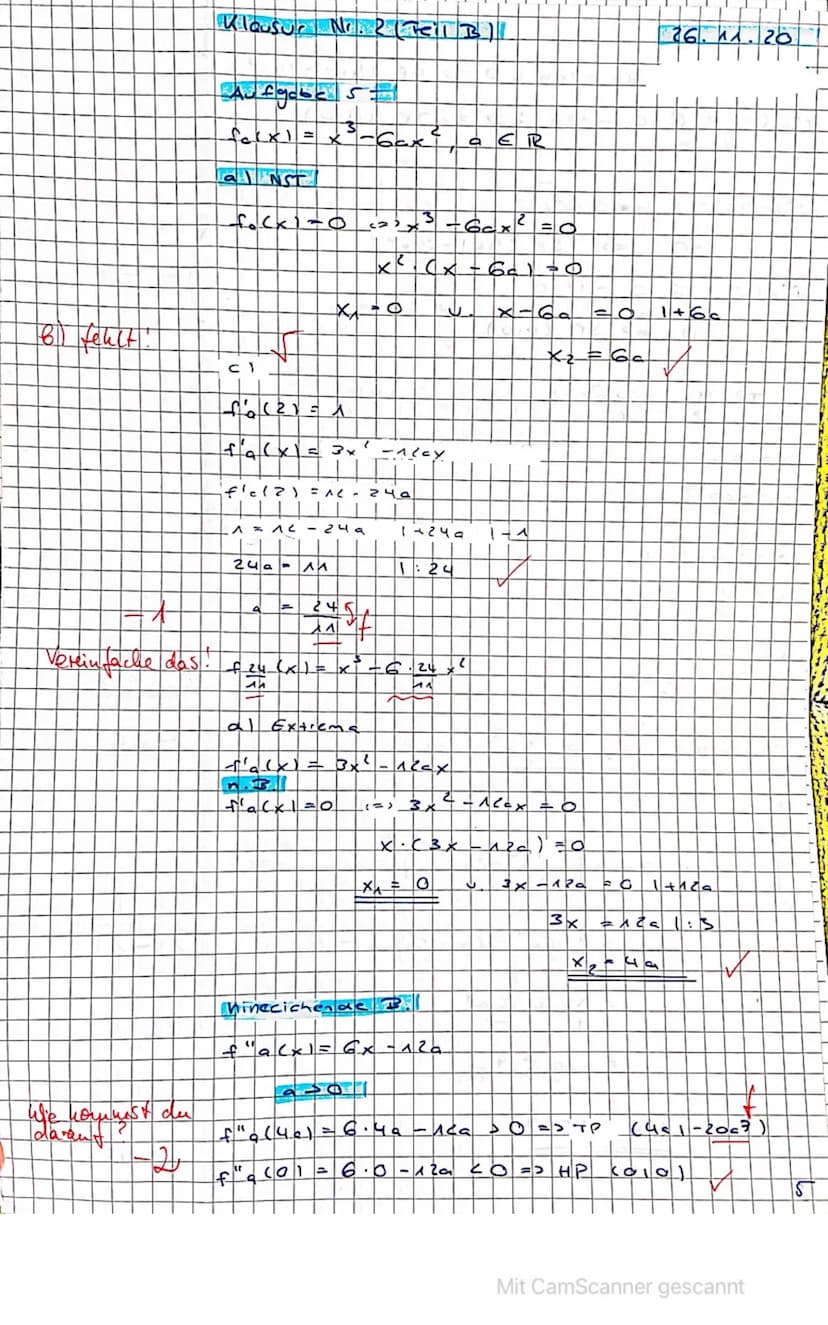 Klausur Nr. 2 (Teil B)
26.11.20
Aufgabe 5
fa(x) = x³-6ax², a ∈ ℝ
a) NST
fa(x)=0 <=> x³ -6ax² = 0
x² · (x - 6a) = 0
x₁ = 0 v. x-6a = 0 |+6a
b) fehlt!
x₂ = 6a ✓
c)
f'a(2) = 1
f'a(x) = 3x² -12ax
f'a(2) = 12 - 24a
1 = 12 - 24a |+24a |-1
24a = 11 |:24 ✓
-1
a = 24/11 f
Vereinfache das! f24/11(x) = x³ -6·24/11 x²
d) Extrema
f'a(x) = 3x² - 12ax
n.B.
f'a(x)=0 <=> 3x² -12ax = 0
x·(3x - 12a) = 0
x₁ = 0 v. 3x -12a = 0 |+12a
3x = 12a |:3
x₂ = 4a ✓
hinreichende B.
f"a(x) = 6x -12a
a>0
Wie kommst du
darauf?
f"a(4a) = 6·4a -12a > 0 => TP (4a|-20a³) f
-2
f"a(0) = 6·0 -12a < 0 => HP (0|0) ✓
5
Mit CamScanner gescannt